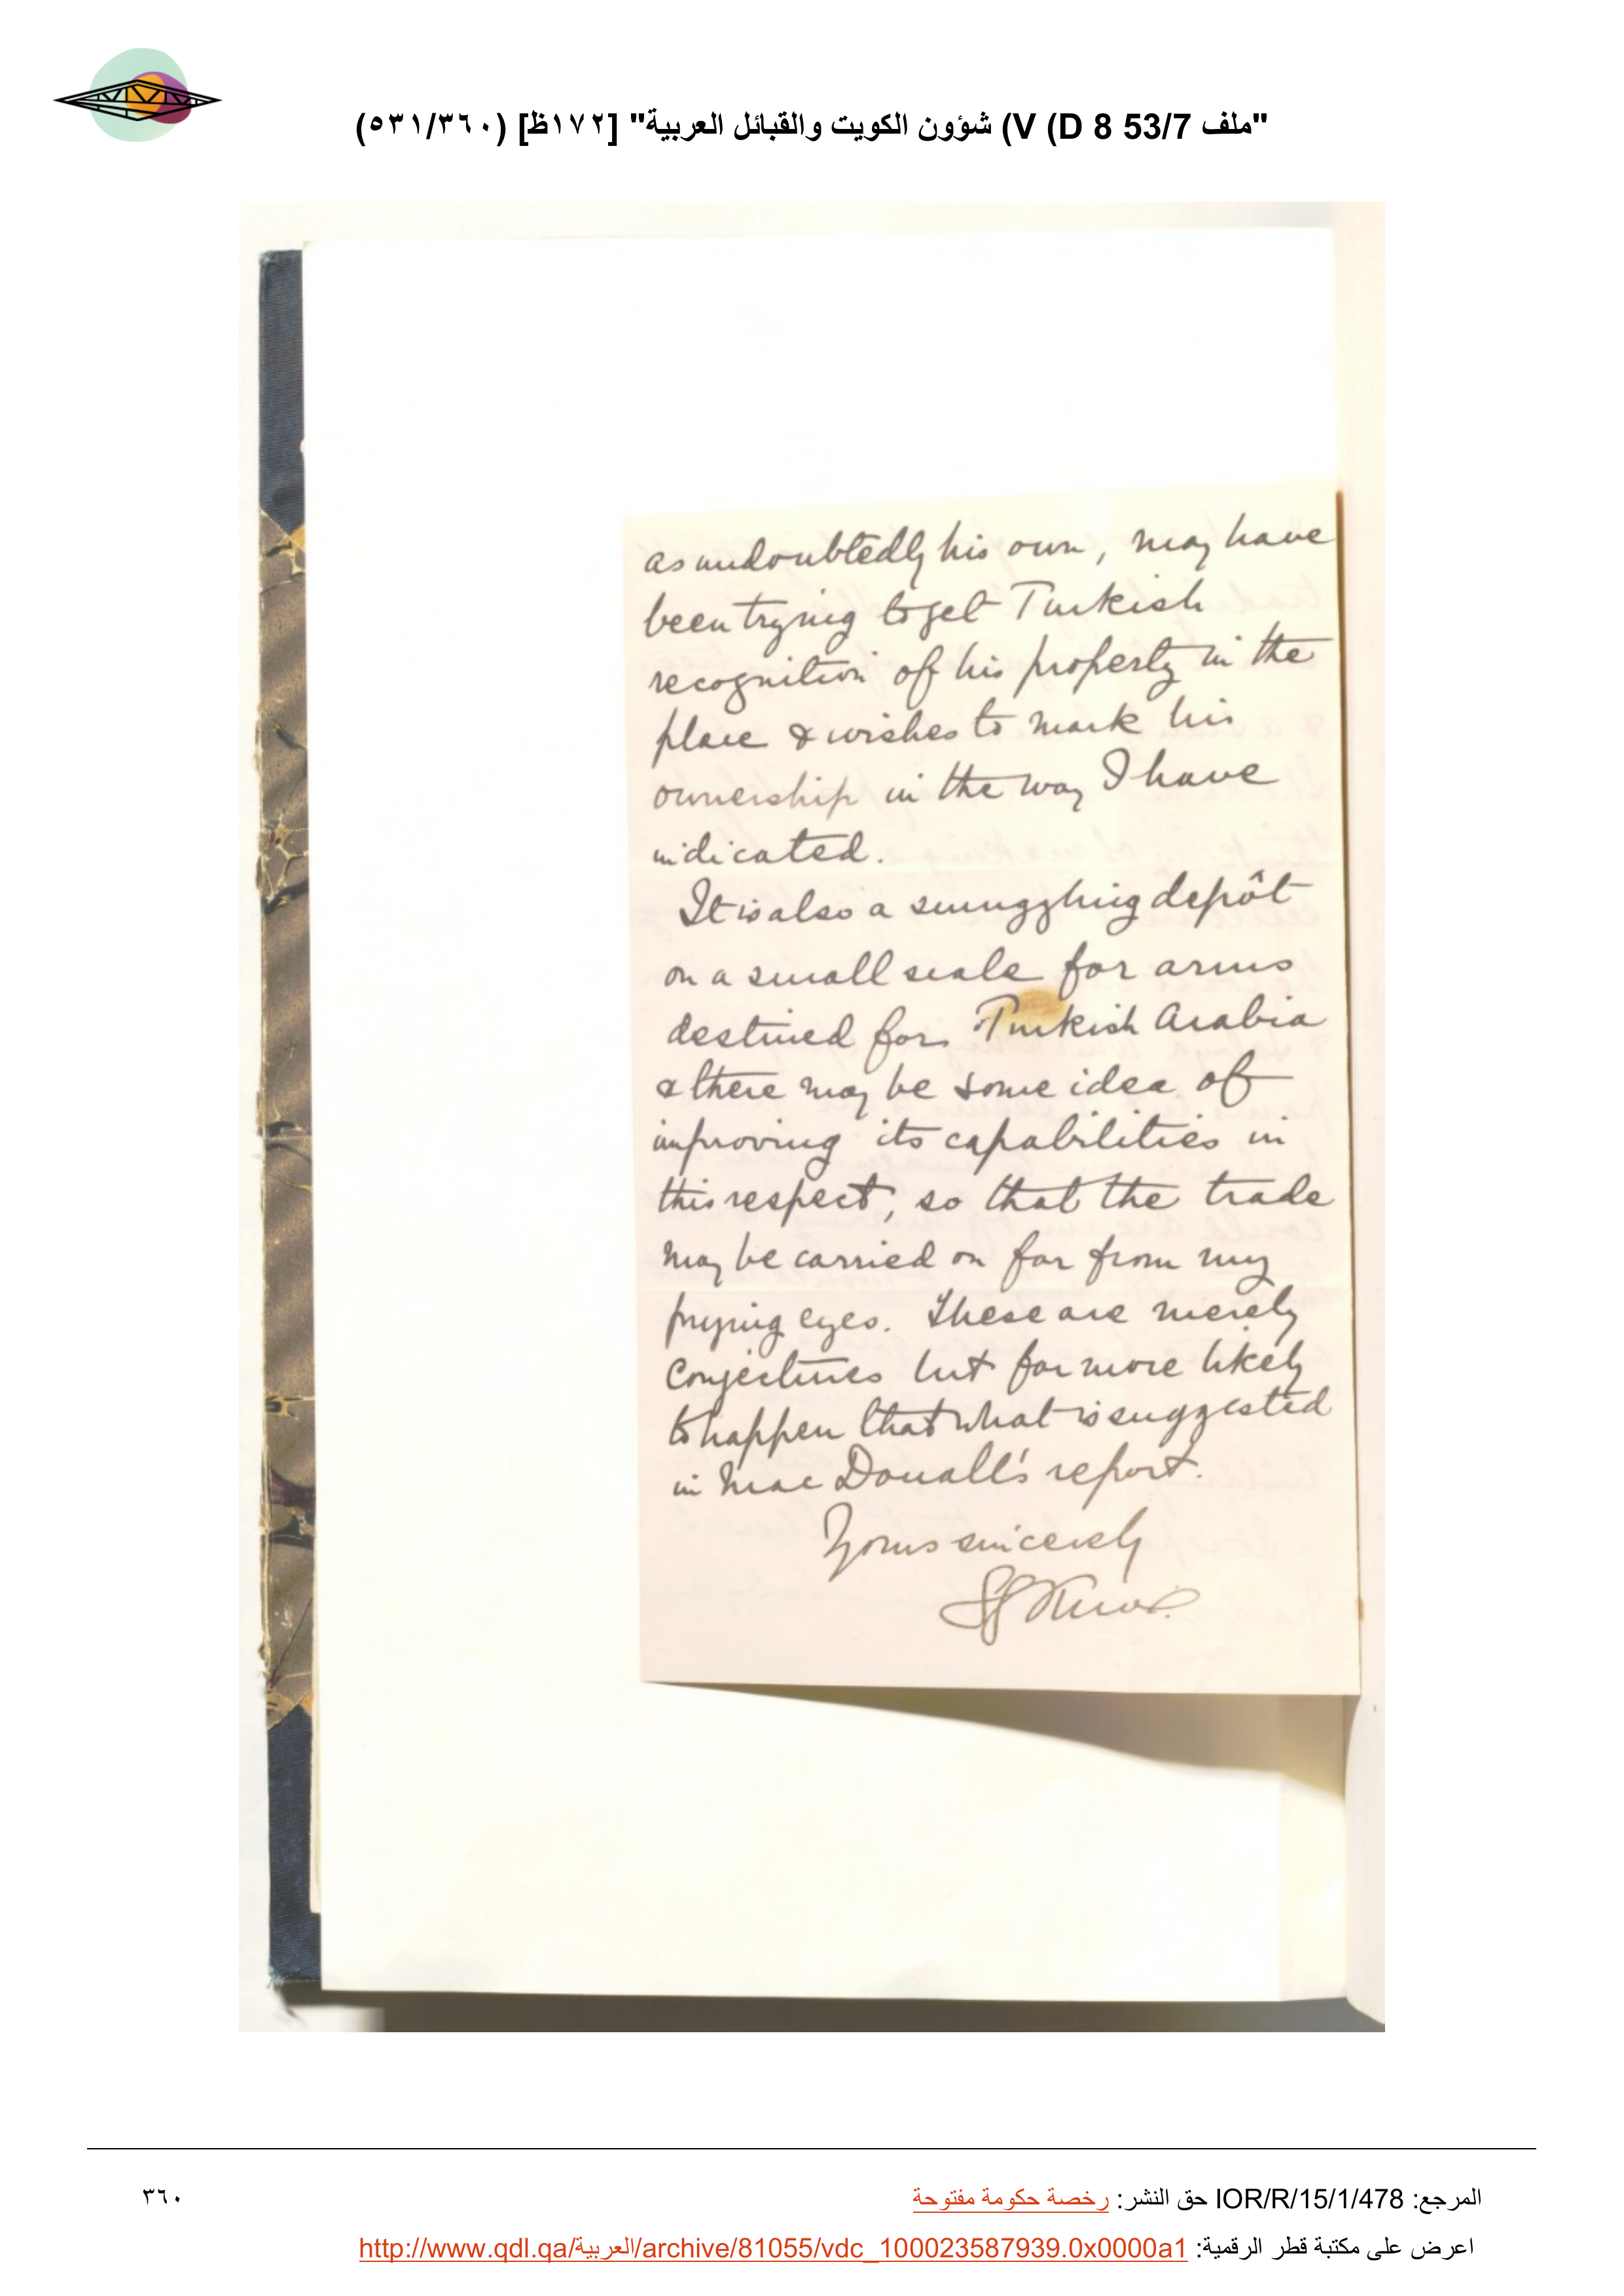 "ملف 53/7 D 8) V) شؤون الكويت والقبائل العربية" [١٧٢ظ] (٥٣١/٣٦٠)
as undoubtedly his own, may have
been trying to get Turkish
recognition of his property in the
place & wishes to mark his
ownership in the way I have
indicated.
It is also a smuggling depôt
on a small scale for arms
destined for Turkish Arabia
& there may be some idea of
improving its capabilities in
this respect, so that the trade
may be carried on far from my
prying eyes. These are merely
conjectures but far more likely
to happen that what is suggested
in Mac Douall's report.
Yours sincerely
SGKnox.
المرجع: IOR/R/15/1/478 حق النشر: رخصة حكومة مفتوحة
٣٦٠
اعرض على مكتبة قطر الرقمية: http://www.qdl.qa/العربية/archive/81055/vdc_100023587939.0x0000a1